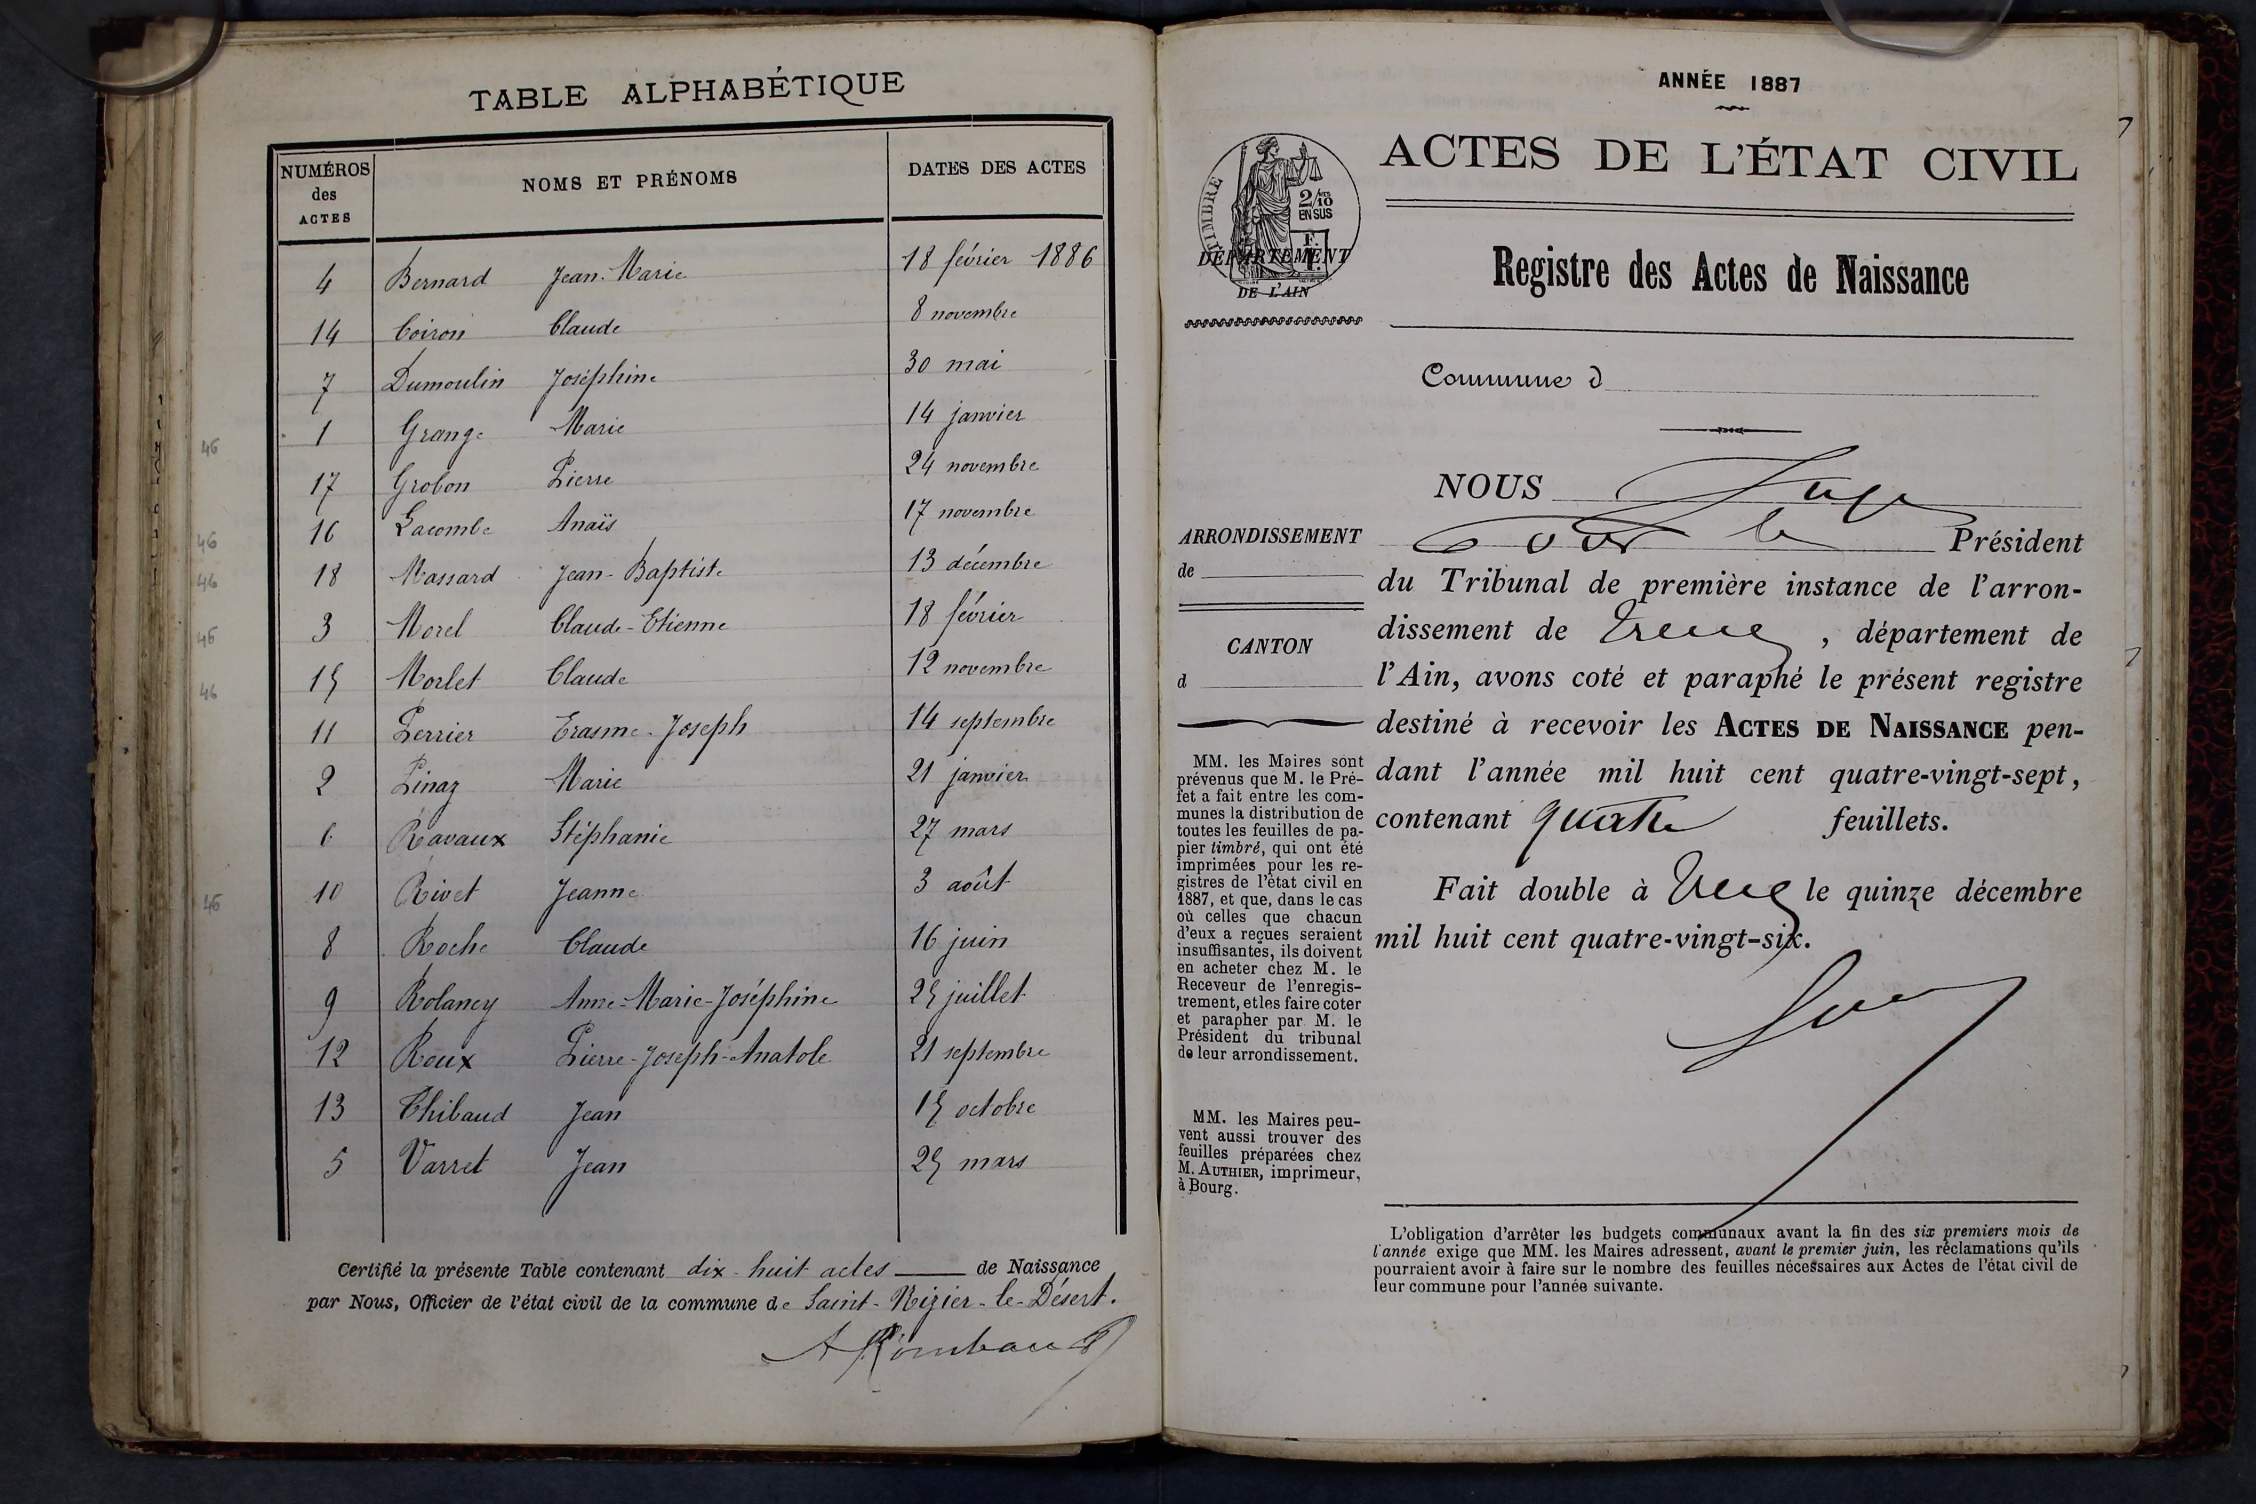 TABLE ALPHABÉTIQUE
NUMÉROS des ACTES NOMS ET PRÉNOMS DATES DES ACTES
4 Bernard Jean-Marie 18 février 1886
14 Coiron Claude 8 novembre
7 Dumoulin Joséphine 30 mai
1 Grange Marie 14 janvier
17 Grobon Pierre 24 novembre
16 Lacombe Anaïs 17 novembre
18 Massard Jean-Baptiste 13 décembre
3 Morel Claude-Etienne 18 février
15 Morlet Claude 12 novembre
11 Perrier Erasme-Joseph 14 septembre
2 Pinaz Marie 21 janvier
6 Ravaux Stéphanie 27 mars
10 Rivet Jeanne 3 août
8 Roche Claude 16 juin
9 Rolancy Anne-Marie-Joséphine 25 juillet
12 Roux Pierre-Joseph-Anatole 21 septembre
13 Thibaud Jean 15 octobre
5 Varret Jean 25 mars
46
46
46
46
46
46
Certifié la présente Table contenant dix-huit actes de Naissance
par Nous, Officier de l'état civil de la commune de Saint-Nizier-le-Désert.
ANNÉE 1887
ACTES DE L'ÉTAT CIVIL
TIMBRE
2/10 EN SUS
DÉPARTEMENT
DE L'AIN
Registre des Actes de Naissance
Commune d
NOUS Juge
pour le Président
du Tribunal de première instance de l'arron-
dissement de Trévoux, département de
l'Ain, avons coté et paraphé le présent registre
destiné à recevoir les ACTES DE NAISSANCE pen-
dant l'année mil huit cent quatre-vingt-sept,
contenant quatre feuillets.
Fait double à le quinze décembre
mil huit cent quatre-vingt-six.
ARRONDISSEMENT
de
CANTON
d
MM. les Maires sont
prévenus que M. le Pré-
fet a fait entre les com-
munes la distribution de
toutes les feuilles de pa-
pier timbré, qui ont été
imprimées pour les re-
gistres de l'état civil en
1887, et que, dans le cas
où celles que chacun
d'eux a reçues seraient
insuffisantes, ils doivent
en acheter chez M. le
Receveur de l'enregis-
trement, et les faire coter
et parapher par M. le
Président du tribunal
de leur arrondissement.
MM. les Maires peu-
vent aussi trouver des
feuilles préparées chez
M. AUTHIER, imprimeur,
à Bourg.
L'obligation d'arrêter les budgets communaux avant la fin des six premiers mois de
l'année exige que MM. les Maires adressent, avant le premier juin, les réclamations qu'ils
pourraient avoir à faire sur le nombre des feuilles nécessaires aux Actes de l'état civil de
leur commune pour l'année suivante.